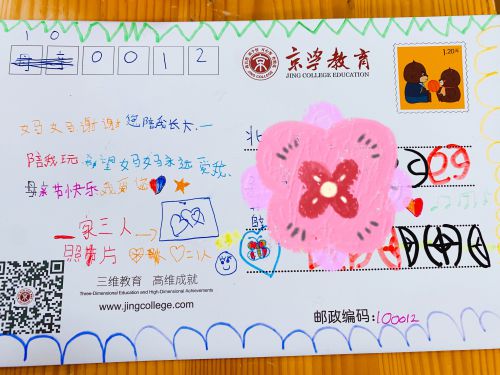 1 0
0 0 1 2
京学教育
JING COLLEGE EDUCATION
1.20元
妈妈谢谢您陪我长大一
北
陪我玩 希望妈妈永远爱我
母亲节快乐 我爱您
一家三人
照片
三维教育 高维成就
Three-Dimensional Education and High-Dimensional Achievements
www.jingcollege.com
邮政编码:100012